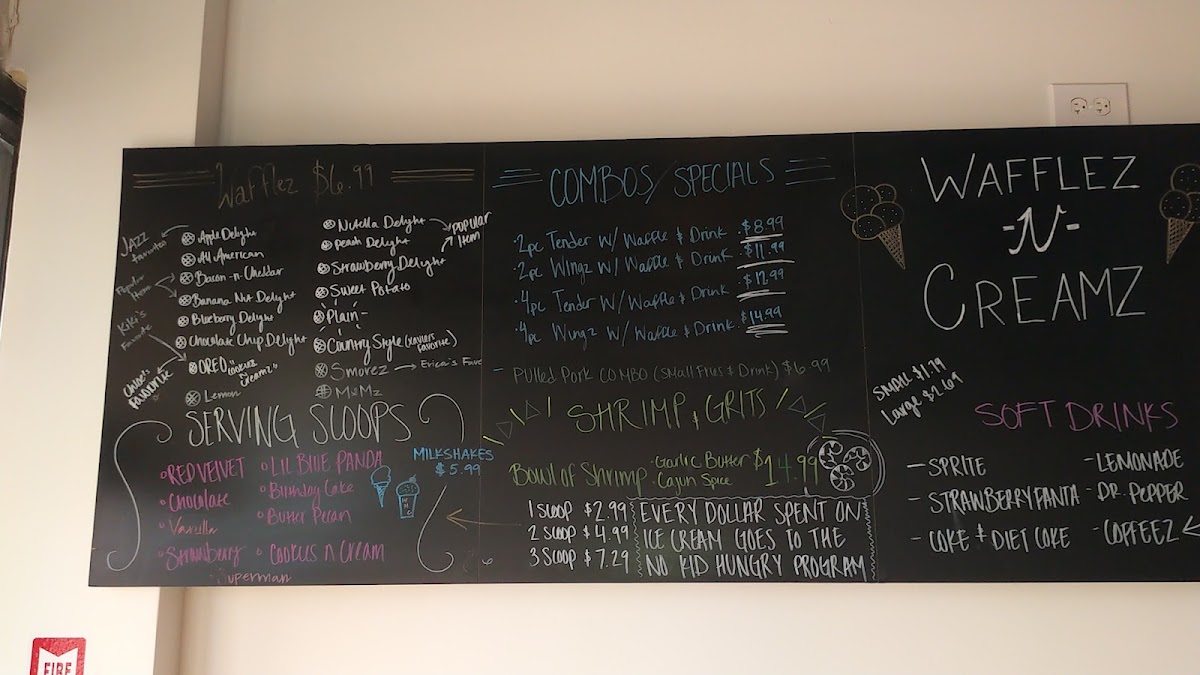 Wafflez $6.99
JAZZ favorites
Apple Delight
All American
Popular Items
Bacon-n-Cheddar
Banana Nut Delight
Blueberry Delight
Kiki's Favorite
Chocolate Chip Delight
OREO "COOKIEZ CREAMZ"
Chloe's FAVORITE
Lemon
Nutella Delight
POPULAR ITEM
Peach Delight
Strawberry Delight
Sweet Potato
Plain
Country Style (Xaviers favorite)
Smorez
Erica's Fave
M&Mz
SERVING SCOOPS
RED VELVET
Chocolate
Vanilla
Strawberry
Superman
LIL BLUE PANDA
Birthday Cake
Butter Pecan
COOKIES N CREAM
MILKSHAKES
$5.99
COMBOS/SPECIALS
·2pc Tender W/ Waffle & Drink. $8.99
·2pc Wingz W/ Waffle & Drink. $11.99
·4pc Tender W/ Waffle & Drink. $12.99
·4pc Wingz W/ Waffle & Drink. $14.99
- Pulled Pork COMBO (Small Fries & Drink) $6.99
SHRIMP & GRITS
Bowl of Shrimp
·Garlic Butter
·Cajun Spice
$14.99
1 SCOOP $2.99
2 SCOOP $4.99
3 SCOOP $7.29
EVERY DOLLAR SPENT ON
ICE CREAM GOES TO THE
NO KID HUNGRY PROGRAM
WAFFLEZ
-N-
CREAMZ
SMALL $1.79
Large $2.69
SOFT DRINKS
- SPRITE
- STRAWBERRY FANTA
- COKE & DIET COKE
- LEMONADE
- DR. PEPPER
- COFFEEZ
FIRE